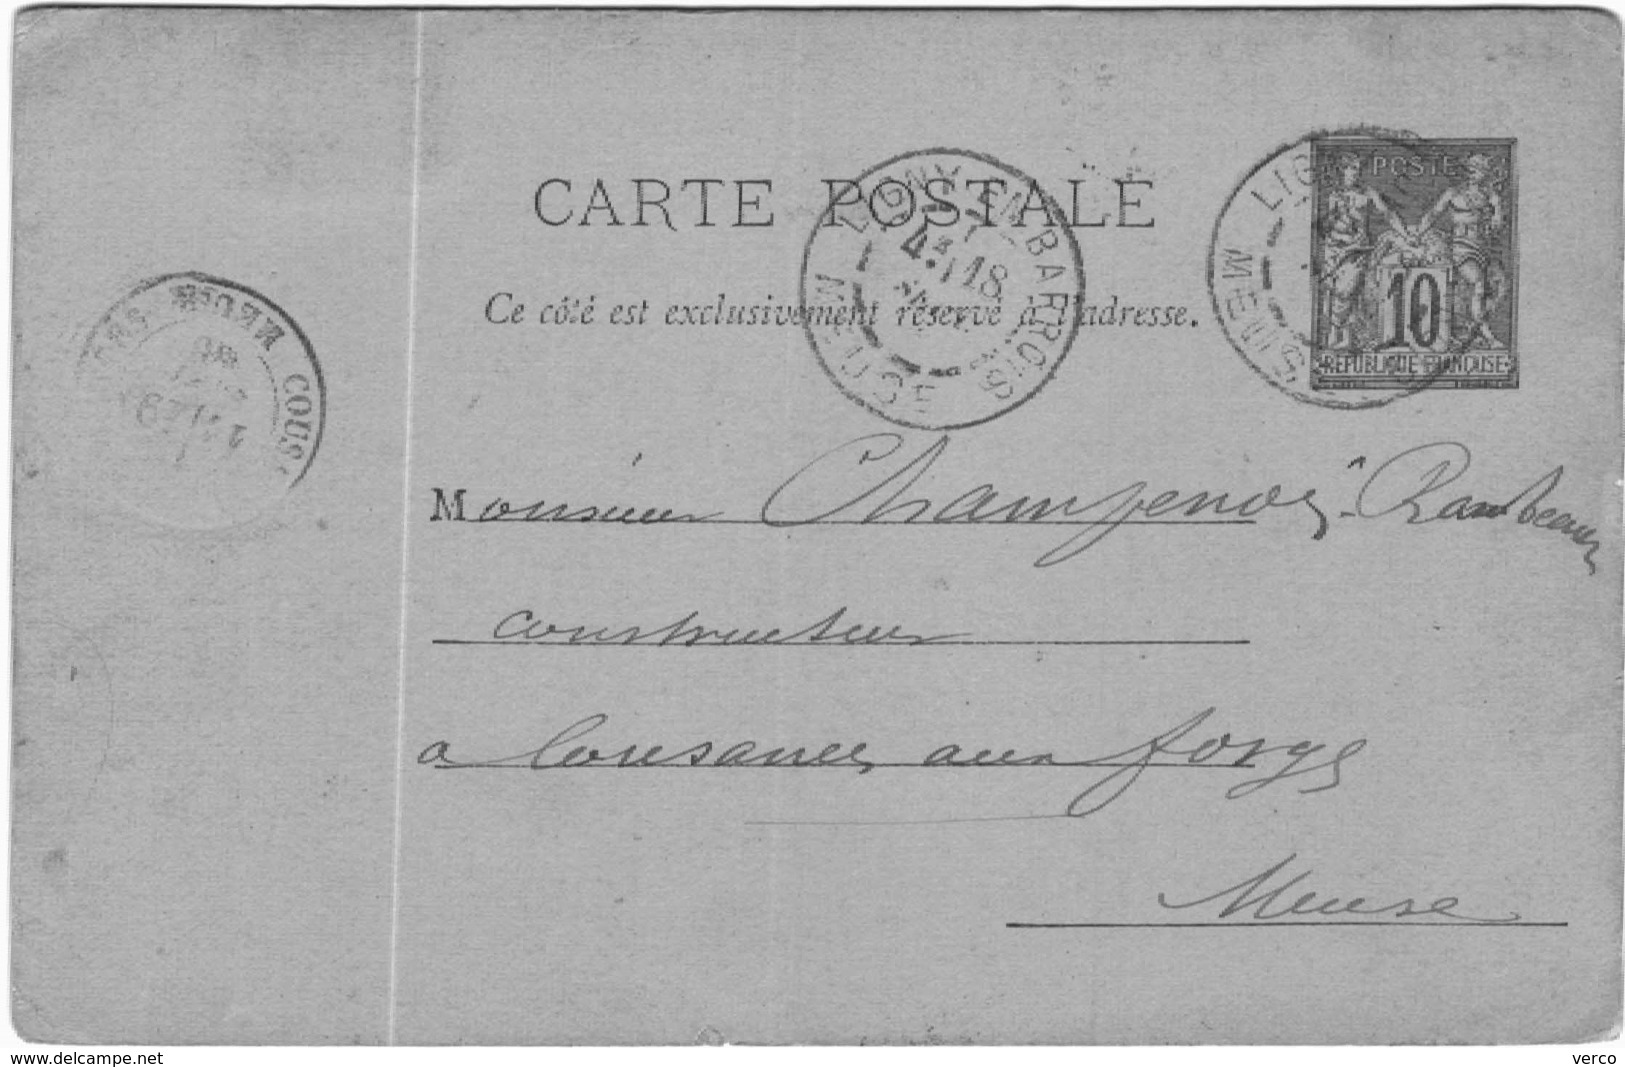 CARTE POSTALE
Ce côté est exclusivement réservé à l'adresse.
POSTE
10
RÉPUBLIQUE FRANÇAISE
LIGNY-EN-BARROIS
4E 18
MEUSE
LIG
MEUSE
COUS
MEUSE
Monsieur Champenois-Rambeaux
constructeur
a Cousances aux forges
Meuse
www.delcampe.net
verco